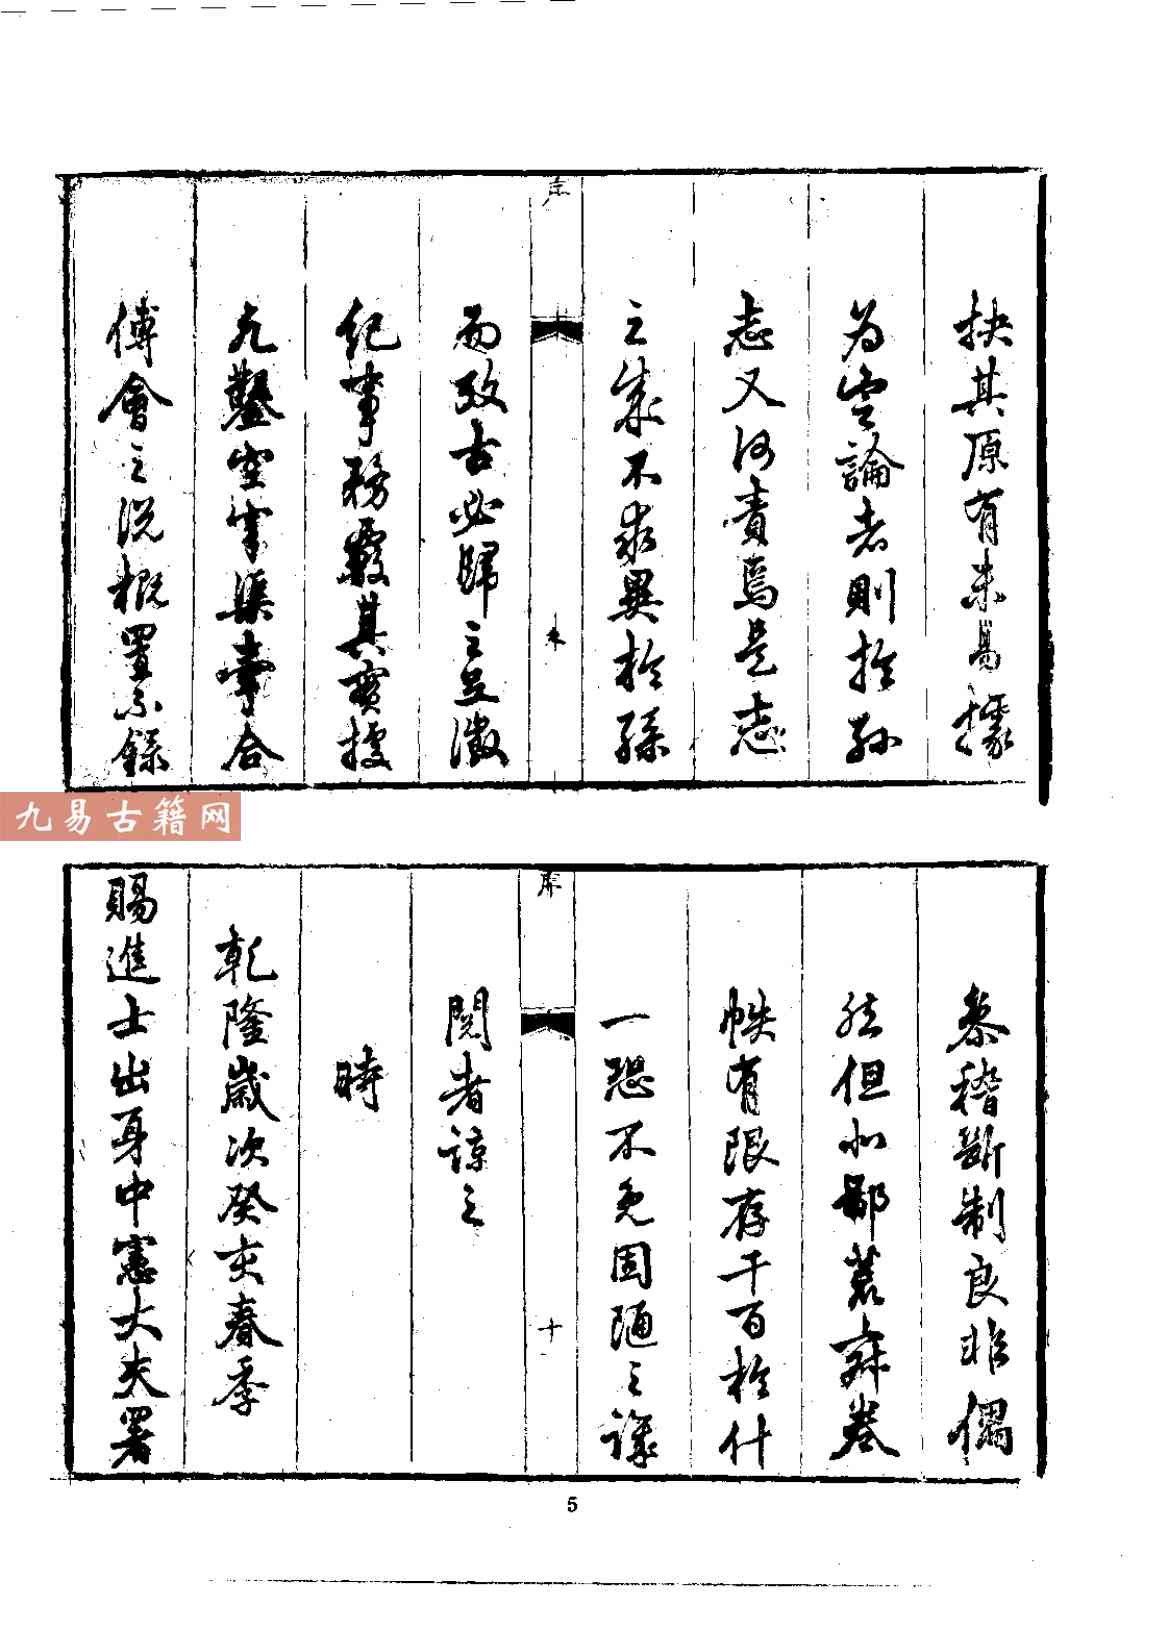 抉其原有未易據
為空論者則於孫
志又何責焉是志
之象不求異於孫
而攷古必歸之豆
紀事務覈其實
凡鑿空牽合
傅會之說概置不錄
序
九易古籍网
叅稽斷制良非偶
然但以鄙荒
帙有限存千百於什
一恐不免固陋之譏
閱者諒之
時
乾隆歲次癸亥春季
賜進士出身中憲大夫署
序
十
5